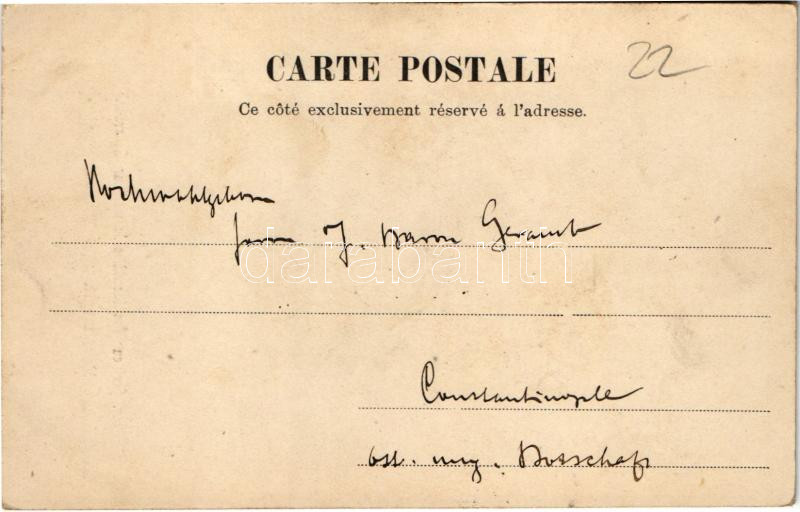 CARTE POSTALE
22
Ce côté exclusivement réservé á l'adresse.
Hochwohlgeborn
Herrn J. Baron Geramb
darabanth
Constantinople
öst. ung. Botschaft